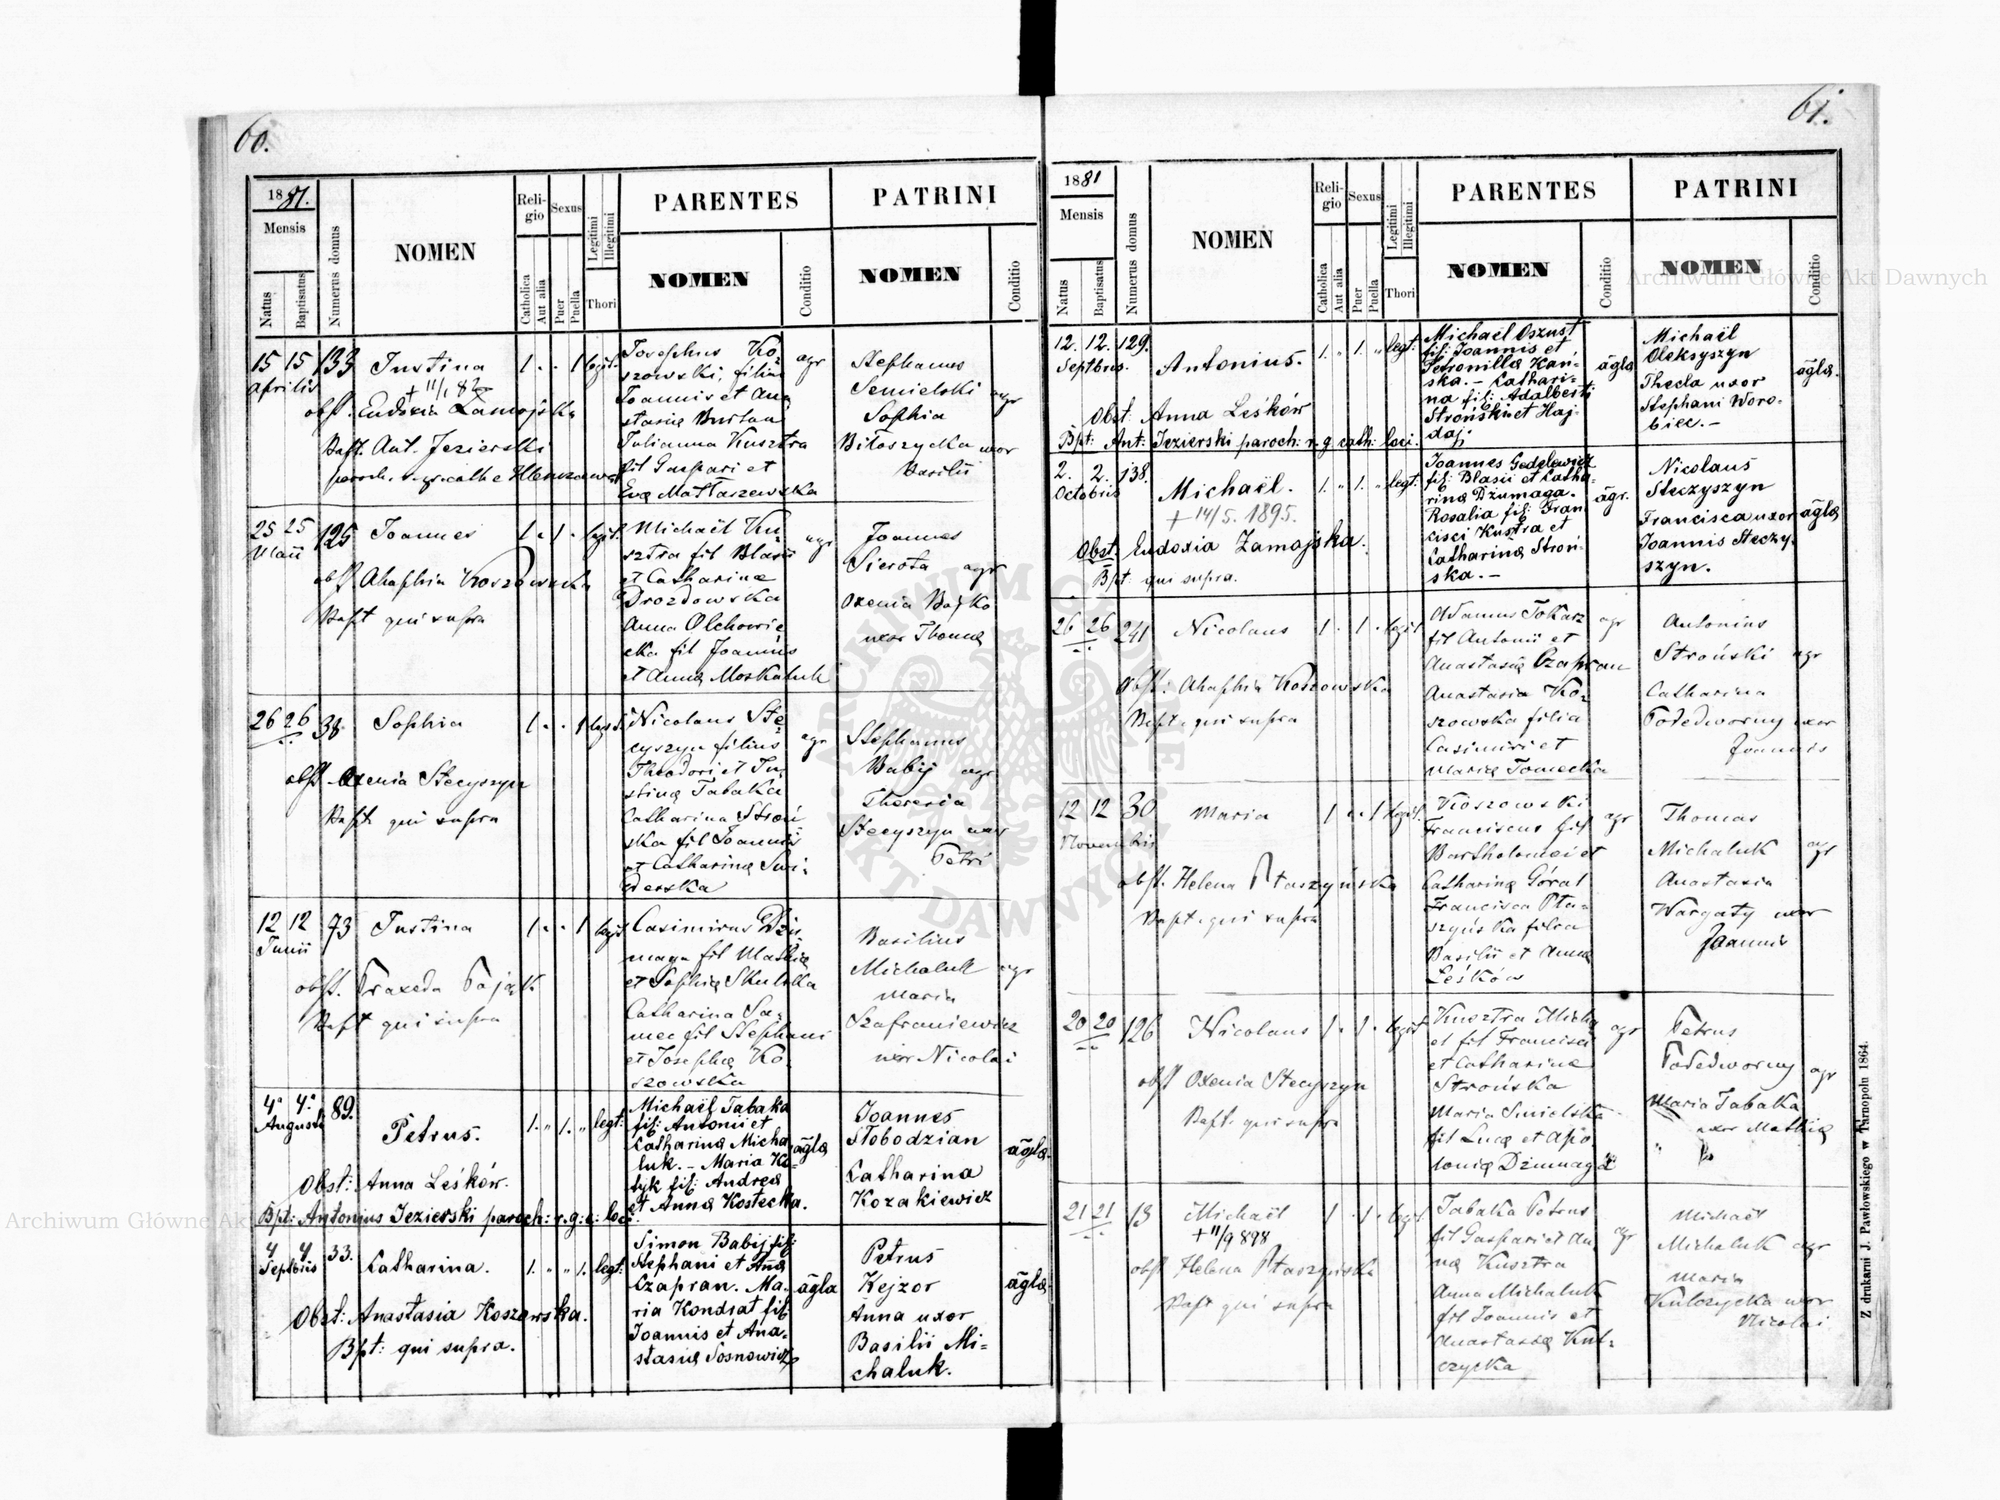 60.
1881.
Mensis
Natus
Baptisatus
Numerus domus
NOMEN
Reli-
gio
Catholica
Aut alia
Sexus
Puer
Puella
Legitimi
Illegitimi
Thori
PARENTES
NOMEN
Conditio
PATRINI
NOMEN
Conditio
15 15 133 Justina 1 . . 1 legit.
Aprilis
+ 11/1 82
obst. Eudoxia Zamojska
Bapt. Ant. Jezierski
paroch. r. gr. cath.
Josephus Ko-
szowski, filius
Joannis et Ana
stasiae Burtan
Julianna Kusztra
fil Gaspari et
Eva Mattaszewska
agr
Stephanus
Semielski agr
Sophia
Bitoszycka uxor
Basilii
25 25 125 Joannes 1 . 1 . legit.
Maii
obst Ahaphia Koszowska
Bapt qui supra
Michaël Ku-
sztra fil Blasii
et Catharinae
Drozdowska
Anna Olchowie
cka fil Joannis
et Anna Moskaluk
agr
Joannes
Sierota agr
Oxenia Bojko
uxor Thomae
26 26 38 Sophia 1 . . 1 legit.
obst Oxenia Stecyszyn
Bapt qui supra
Nicolaus Ste
cyszyn filius
Theodori et Ju
stinae Tabaka
Catharina Stroń
ska fil Joannis
et Catharinae Swi-
derska
agr
Stephanus
Babij agr
Theresia
Stecyszyn uxor
Petri
12 12 73 Justina 1 . . 1 legit
Junii
obst. Praxeda Pająk
Bapt qui supra
Casimirus Dżu
maga fil Mathiae
et Sophiae Skulska
Catharina Sa-
mec fil Stephani
et Josephae Ko-
szowska
Basilius
Michaluk agr
Maria
Szafraniewicz
uxor Nicolai
4. 4. 89. Petrus. 1. „ 1. „ legt:
Augusti
Obst: Anna Leśków.
Bpt: Antonius Jezierski paroch: r. g: c: loci.
Michaël Tabaka
fil: Antonii et
Catharinae Micha
luk. – Maria Ko-
tyk fil: Andreae
et Annae Kostecka.
agla
Joannes
Słobodzian
Catharina
Kozakiewicz
aglae.
4. 4. 33. Catharina. 1. „ „ 1. legt:
Septbris
Obst: Anastasia Koszowska.
Bpt: qui supra.
Simon Babij fil:
Stephani et Annae
Czapran. Ma-
ria Kondrat fil:
Joannis et Ana-
stasiae Sosnowicz
agla
Petrus
Kejzor
Anna uxor
Basilii Mi-
chaluk.
aglae
61.
1881
Mensis
Natus
Baptisatus
Numerus domus
NOMEN
Reli-
gio
Catholica
Aut alia
Sexus
Puer
Puella
Legitimi
Illegitimi
Thori
PARENTES
NOMEN
Conditio
PATRINI
NOMEN
Conditio
12. 12. 129. Antonius. 1. „ 1. „ legt:
Septbris.
Obst: Anna Leśków
Bpt: Ant: Jezierski paroch: r. g. cath: loci.
Michaël Oszust
fil: Joannis et
Petronilla Kań-
ska. – Cathari-
na fil: Adalberti
Stroński et Haj-
daj.
agla
Michaël
Oleksyszyn
Thecla uxor
Stephani Woro-
biec. –
aglae.
2. 2. 138. Michaël. 1. „ 1. „ legt:
Octobris
+ 14/5. 1895.
Obst. Eudoxia Zamojska.
Bpt: qui supra.
Joannes Godelewicz
fil: Blasii et Catha-
rinae Dżumaga.
Rosalia fil: Fran
cisci Kustra et
Catharinae Stroń-
ska. –
agr.
Nicolaus
Steczyszyn
Francisca uxor
Joannis Steczy-
szyn.
aglae
26 26 241 Nicolaus 1 . 1 . legit
obst: Ahaphia Koszowska
Bapt. qui supra
Adamus Tokarz
fil Antonii et
Anastasiae Czapran
Anastasia Ko-
szowska filia
Casimiri et
Mariae Tomecka
agr
Antonius
Stroński agr
Catharina
Podedworny uxor
Joannis
12 12 30 Maria 1 . . 1 legit.
Novembris
obst. Helena Ptaszyńska
Bapt. qui supra
Koszowski
Franciscus fil
Bartholomei et
Catharinae Góral
Francisca Pta-
szyńska filia
Basilii et Annae
Leśków
agr
Thomas
Michaluk agr
Anastasia
Wargaty uxor
Joannis
20 20 126 Nicolaus 1 . 1 . legit
obst Oxenia Stecyszyn
Bapt. qui supra
Kusztra Micha
el fil Francisci
et Catharinae
Strońska
Maria Smielska
fil Lucae et Apo
loniae Dżumaga
agr
Petrus
Podedworny agr
Maria Tabaka
uxor Mathiae
21 21 13 Michaël 1 . 1 . legit
+ 11/9 898
obst Helena Ptaszyńska
Bapt qui supra
Tabaka Petrus
fil Gaspari et An
nae Kusztra
Anna Michaluk
fil Joannis et
Anastasiae Kul-
czycka
agr
Michaël
Michaluk agr
Maria
Kulczycka uxor
Nicolai
Z drukarni J. Pawłowskiego w Tarnopolu 1864.
Archiwum Główne Akt Dawnych
Archiwum Główne Akt
ARCHIWUM GŁÓWNE
AKT DAWNYCH